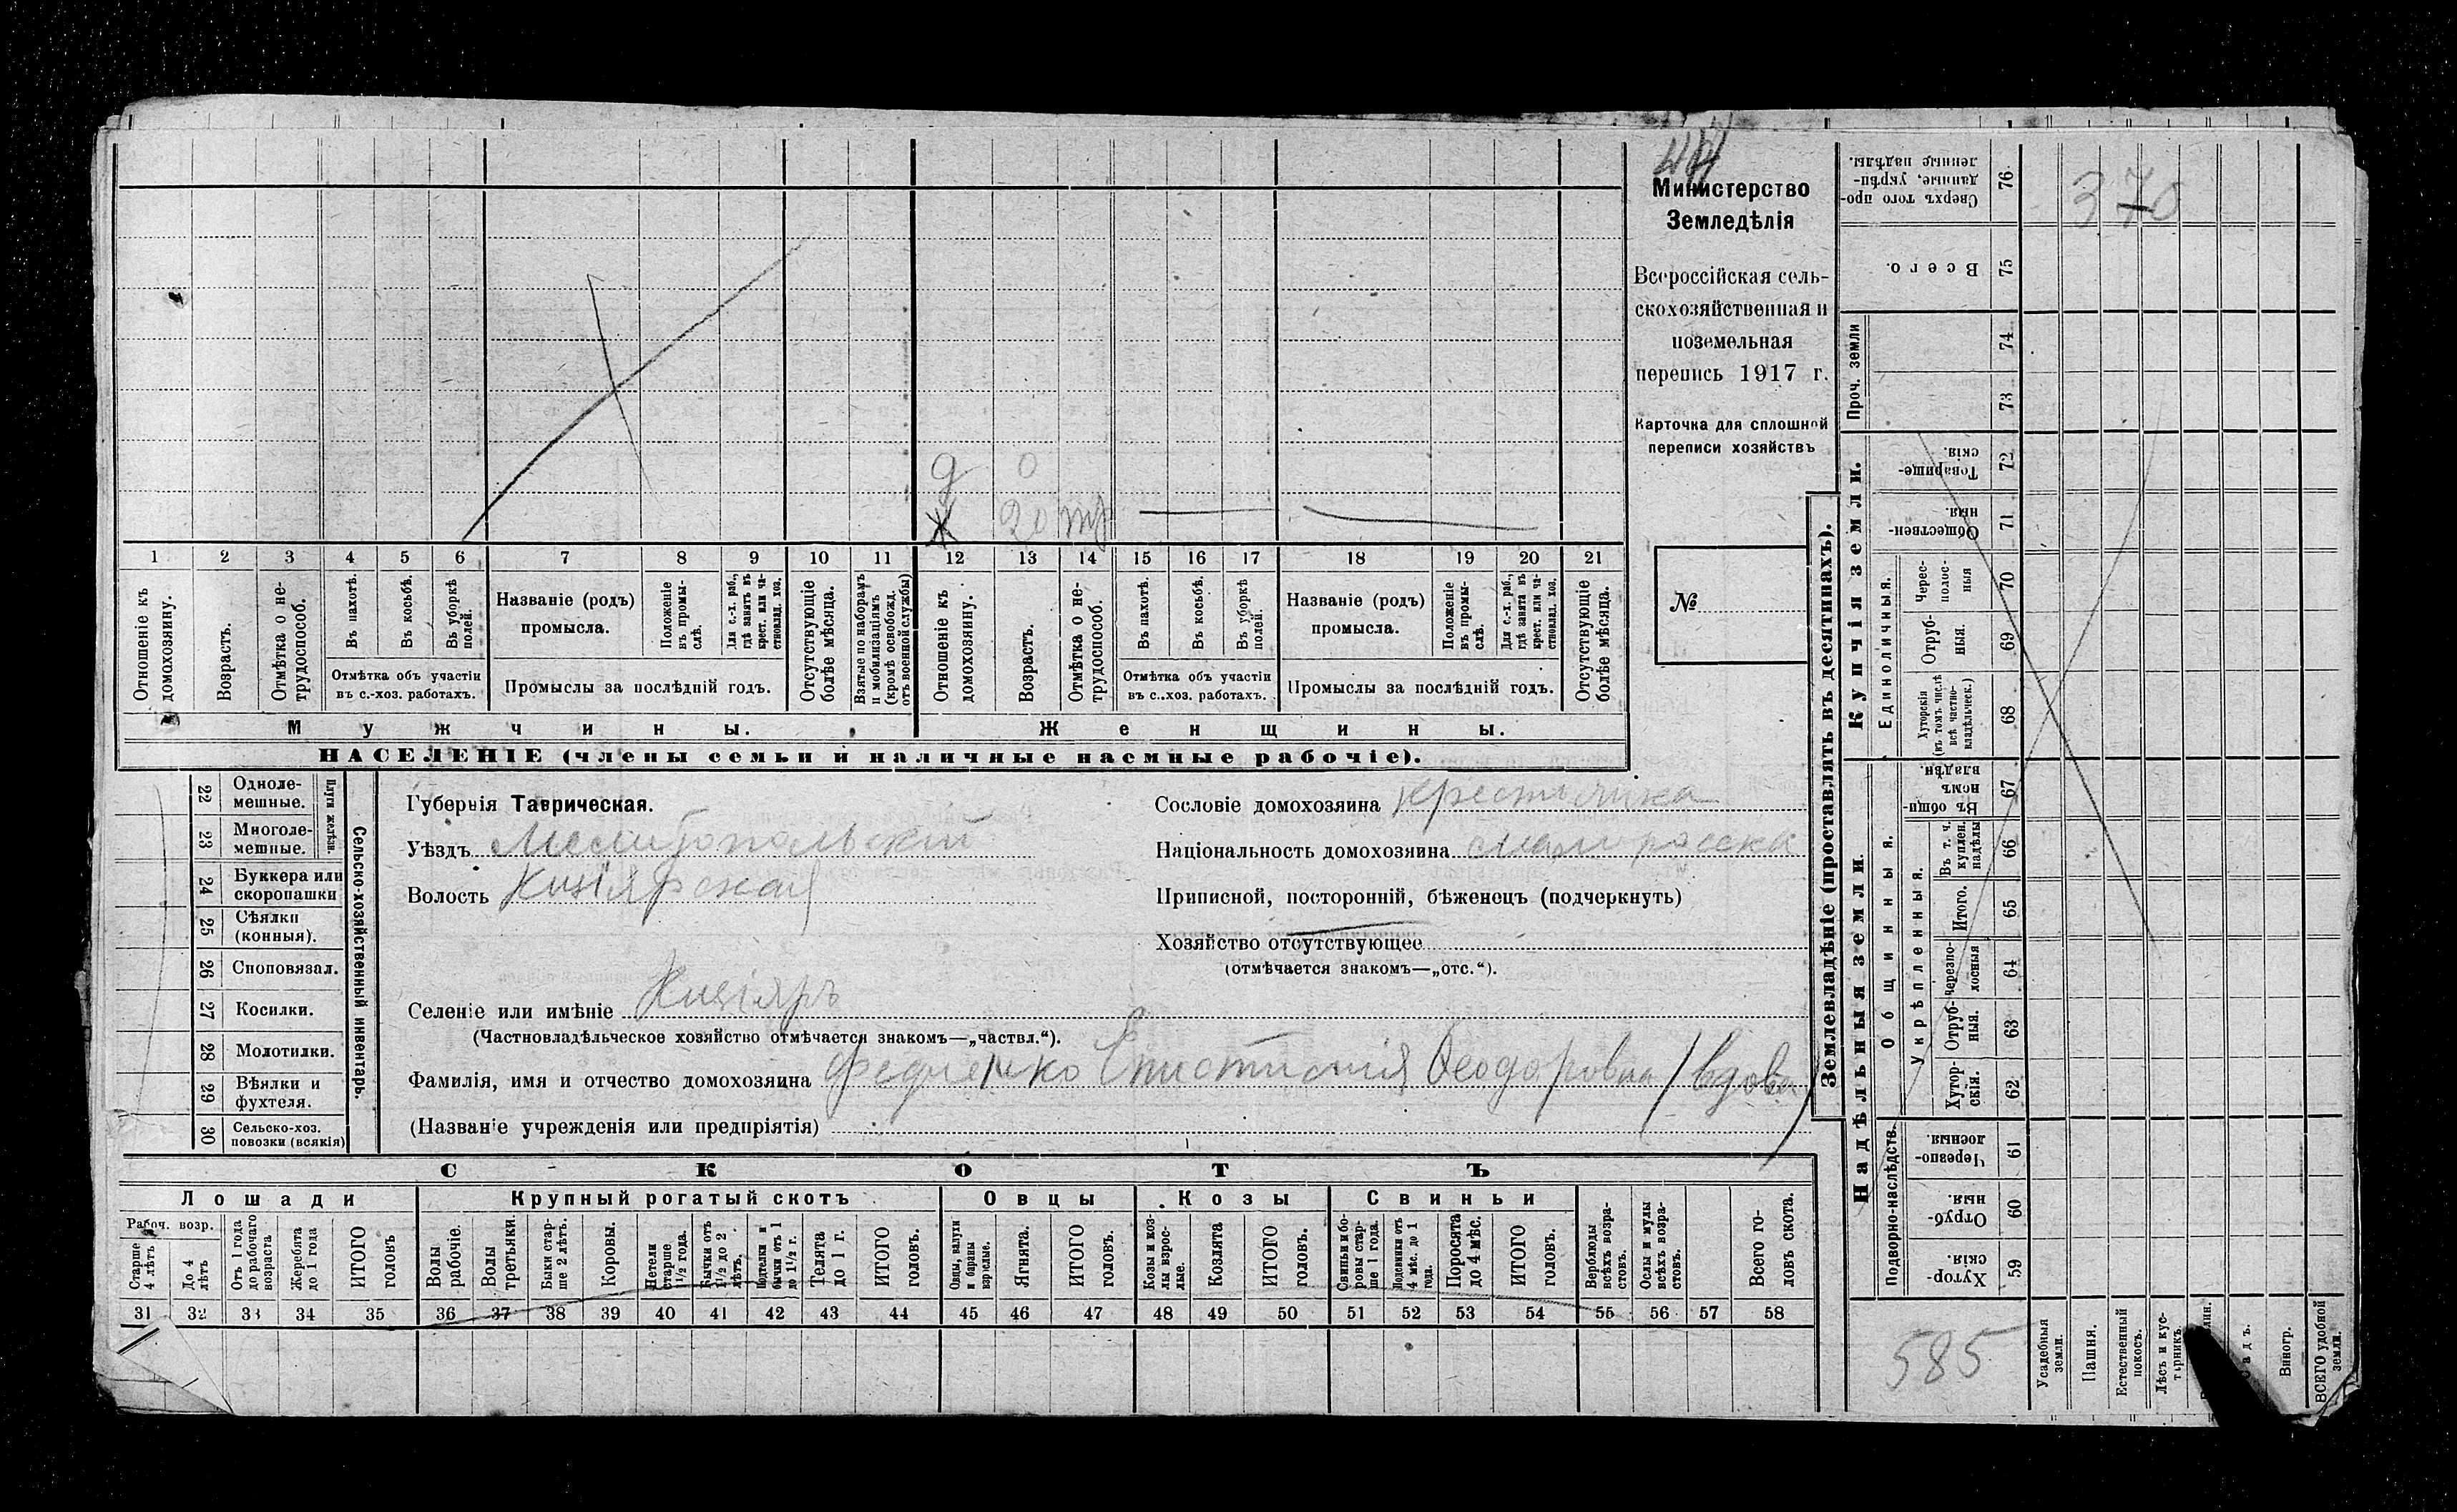 44
Министерство
Земледѣлія
Всероссійская сель-
скохозяйственная и
поземельная
перепись 1917 г.
Карточка для сплошной
переписи хозяйствъ
№
д 0
20
1 2 3 4 5 6 7 8 9 10 11 12 13 14 15 16 17 18 19 20 21
Отношеніе къ домохозяину.
Возрастъ.
Отмѣтка о не-трудоспособ.
Въ пахотѣ.
Въ косьбѣ.
Въ уборкѣ полей.
Отмѣтка объ участіи
въ с.-хоз. работахъ.
Названіе (родъ)
промысла.
Положеніе въ промы-слѣ.
Для с.-х. раб., гдѣ занятъ въ крест. или ча-стновлад. хоз.
Промыслы за послѣдній годъ.
Отсутствующіе болѣе мѣсяца.
Взятые по наборамъ и мобилизаціямъ (кромѣ освобожд. отъ военной службы)
Отношеніе къ домохозяину.
Возрастъ.
Отмѣтка о не-трудоспособ.
Въ пахотѣ.
Въ косьбѣ.
Въ уборкѣ полей.
Отмѣтка объ участіи
въ с..хоз. работахъ.
Названіе (родъ)
промысла.
Положеніе въ промы-слѣ.
Для с.-х. раб., гдѣ занята въ крест. или ча-стновлад. хоз.
Промыслы за послѣдній годъ.
Отсутствующіе болѣе мѣсяца.
Мужчины.
Женщины.
НАСЕЛЕНІЕ (члены семьи и наличные наемные рабочіе).
Сельско-хозяйственный инвентарь.
Плуги желѣзн.
22 Одноле-мешные.
23 Многоле-мешные.
24 Буккера или скоропашки
25 Сѣялки (конныя).
26 Сноповязал.
27 Косилки.
28 Молотилки.
29 Вѣялки и фухтеля.
30 Сельско-хоз. повозки (всякія)
Губернія Таврическая.
Уѣздъ Мелитопольскій
Волость Кизіярская
Селеніе или имѣніе Кизіяръ
(Частновладѣльческое хозяйство отмѣчается знакомъ—„частвл.“).
Фамилія, имя и отчество домохозяина Федченко Епистимія Феодоровна /вдова/
(Названіе учрежденія или предпріятія)
Сословіе домохозяина крестьянка
Національность домохозяина малоросска
Приписной, посторонній, бѣженецъ (подчеркнуть)
Хозяйство отсутствующее
(отмѣчается знакомъ—„отс.“).
СКОТЪ
Лошади
Крупный рогатый скотъ
Овцы
Козы
Свиньи
Рабоч. возр.
Старше 4 лѣтъ
До 4 лѣтъ
Отъ 1 года до рабочаго возраста
Жеребята до 1 года
ИТОГО головъ
Волы рабочіе.
Волы третьяки.
Быки стар-ше 2 лѣтъ.
Коровы.
Нетели старше 1½ года.
Бычки отъ 1½ до 2 лѣтъ.
Подтелки и бычки отъ 1 до 1½ г.
Телята до 1 г.
ИТОГО головъ.
Овцы, валухи и бараны взрослые.
Ягнята.
ИТОГО головъ.
Козы и коз-лы взрос-лые.
Козлята
ИТОГО головъ.
Свиньи и бо-ровы стар-ше 1 года.
Подсвинки отъ 4 мѣс. до 1 года.
Поросята до 4 мѣс.
ИТОГО головъ.
Верблюды всѣхъ возра-стовъ.
Ослы и мулы всѣхъ возра-стовъ.
Всего го-ловъ скота.
31 32 33 34 35 36 37 38 39 40 41 42 43 44 45 46 47 48 49 50 51 52 53 54 55 56 57 58
Землевладѣніе (проставлять въ десятинахъ).
Надѣльныя земли.
Купчія земли.
Проч. земли
Подворно-наслѣдств.
Общинныя.
Укрѣпленныя.
Единоличныя.
Сверхъ того про-данные, укрѣп-ленные надѣлы. 76
Всего. 75
74
73
Товарище-скія. 72
Обществен-ныя. 71
Черес-полос-ныя 70
Отруб-ныя. 69
Хуторскія (въ томъ числѣ всѣ частно-владѣльческ.) 68
Въ общи-номъ владѣн. 67
Въ т. ч. куплен. надѣлы 66
Итого. 65
Черезпо-лосныя 64
Отруб-ныя. 63
Хутор-скія. 62
Черезпо-лосныя. 61
Отруб-ныя. 60
Хутор-скія. 59
370
585
Усадебныя земли.
Пашня.
Естественный покосъ.
Лѣсъ и кус-тарникъ.
Виногр.
ВСЕГО удобной земли.